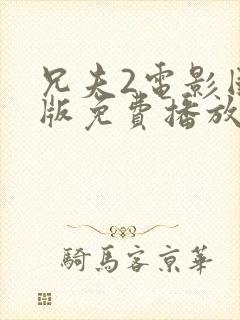 兄夫2電影
版免費播放
騎馬客京華